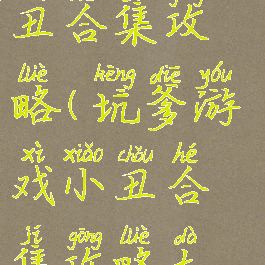 丑合集攻
lüè kēng diē yóu
略(坑爹游
xì xiǎo chǒu hé
戏小丑合
jí gōng lüè dà
集攻略大